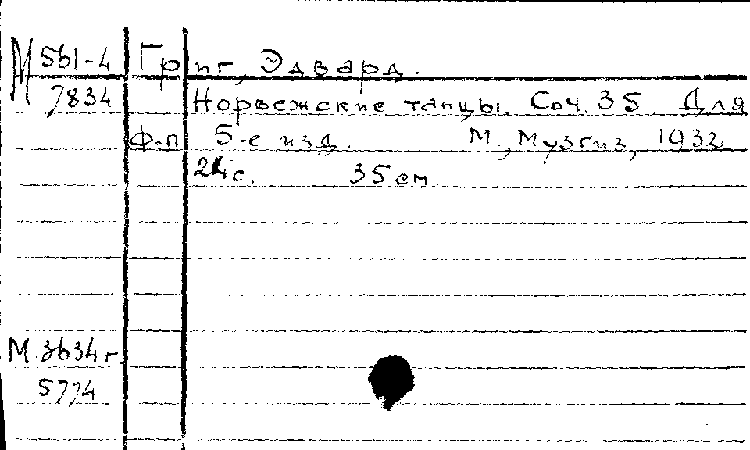 М 561-4 Григ, Эдвард.
7834 Норвежские танцы. Соч. 35. Для
ф-п 5-е изд. М., Музгиз, 1932
24 с. 35 см
М. 3634 г.
5774